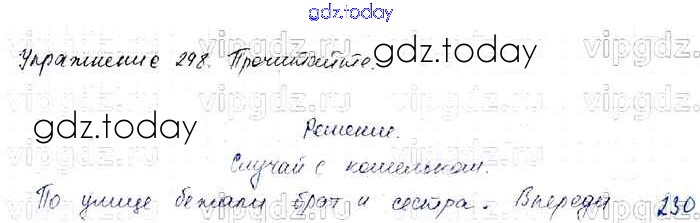 gdz.today
Упражнение 298. Прочитайте.
gdz.today
gdz.today
Решение.
Случай с кошельком.
По улице бежали брат и сестра. Впереди